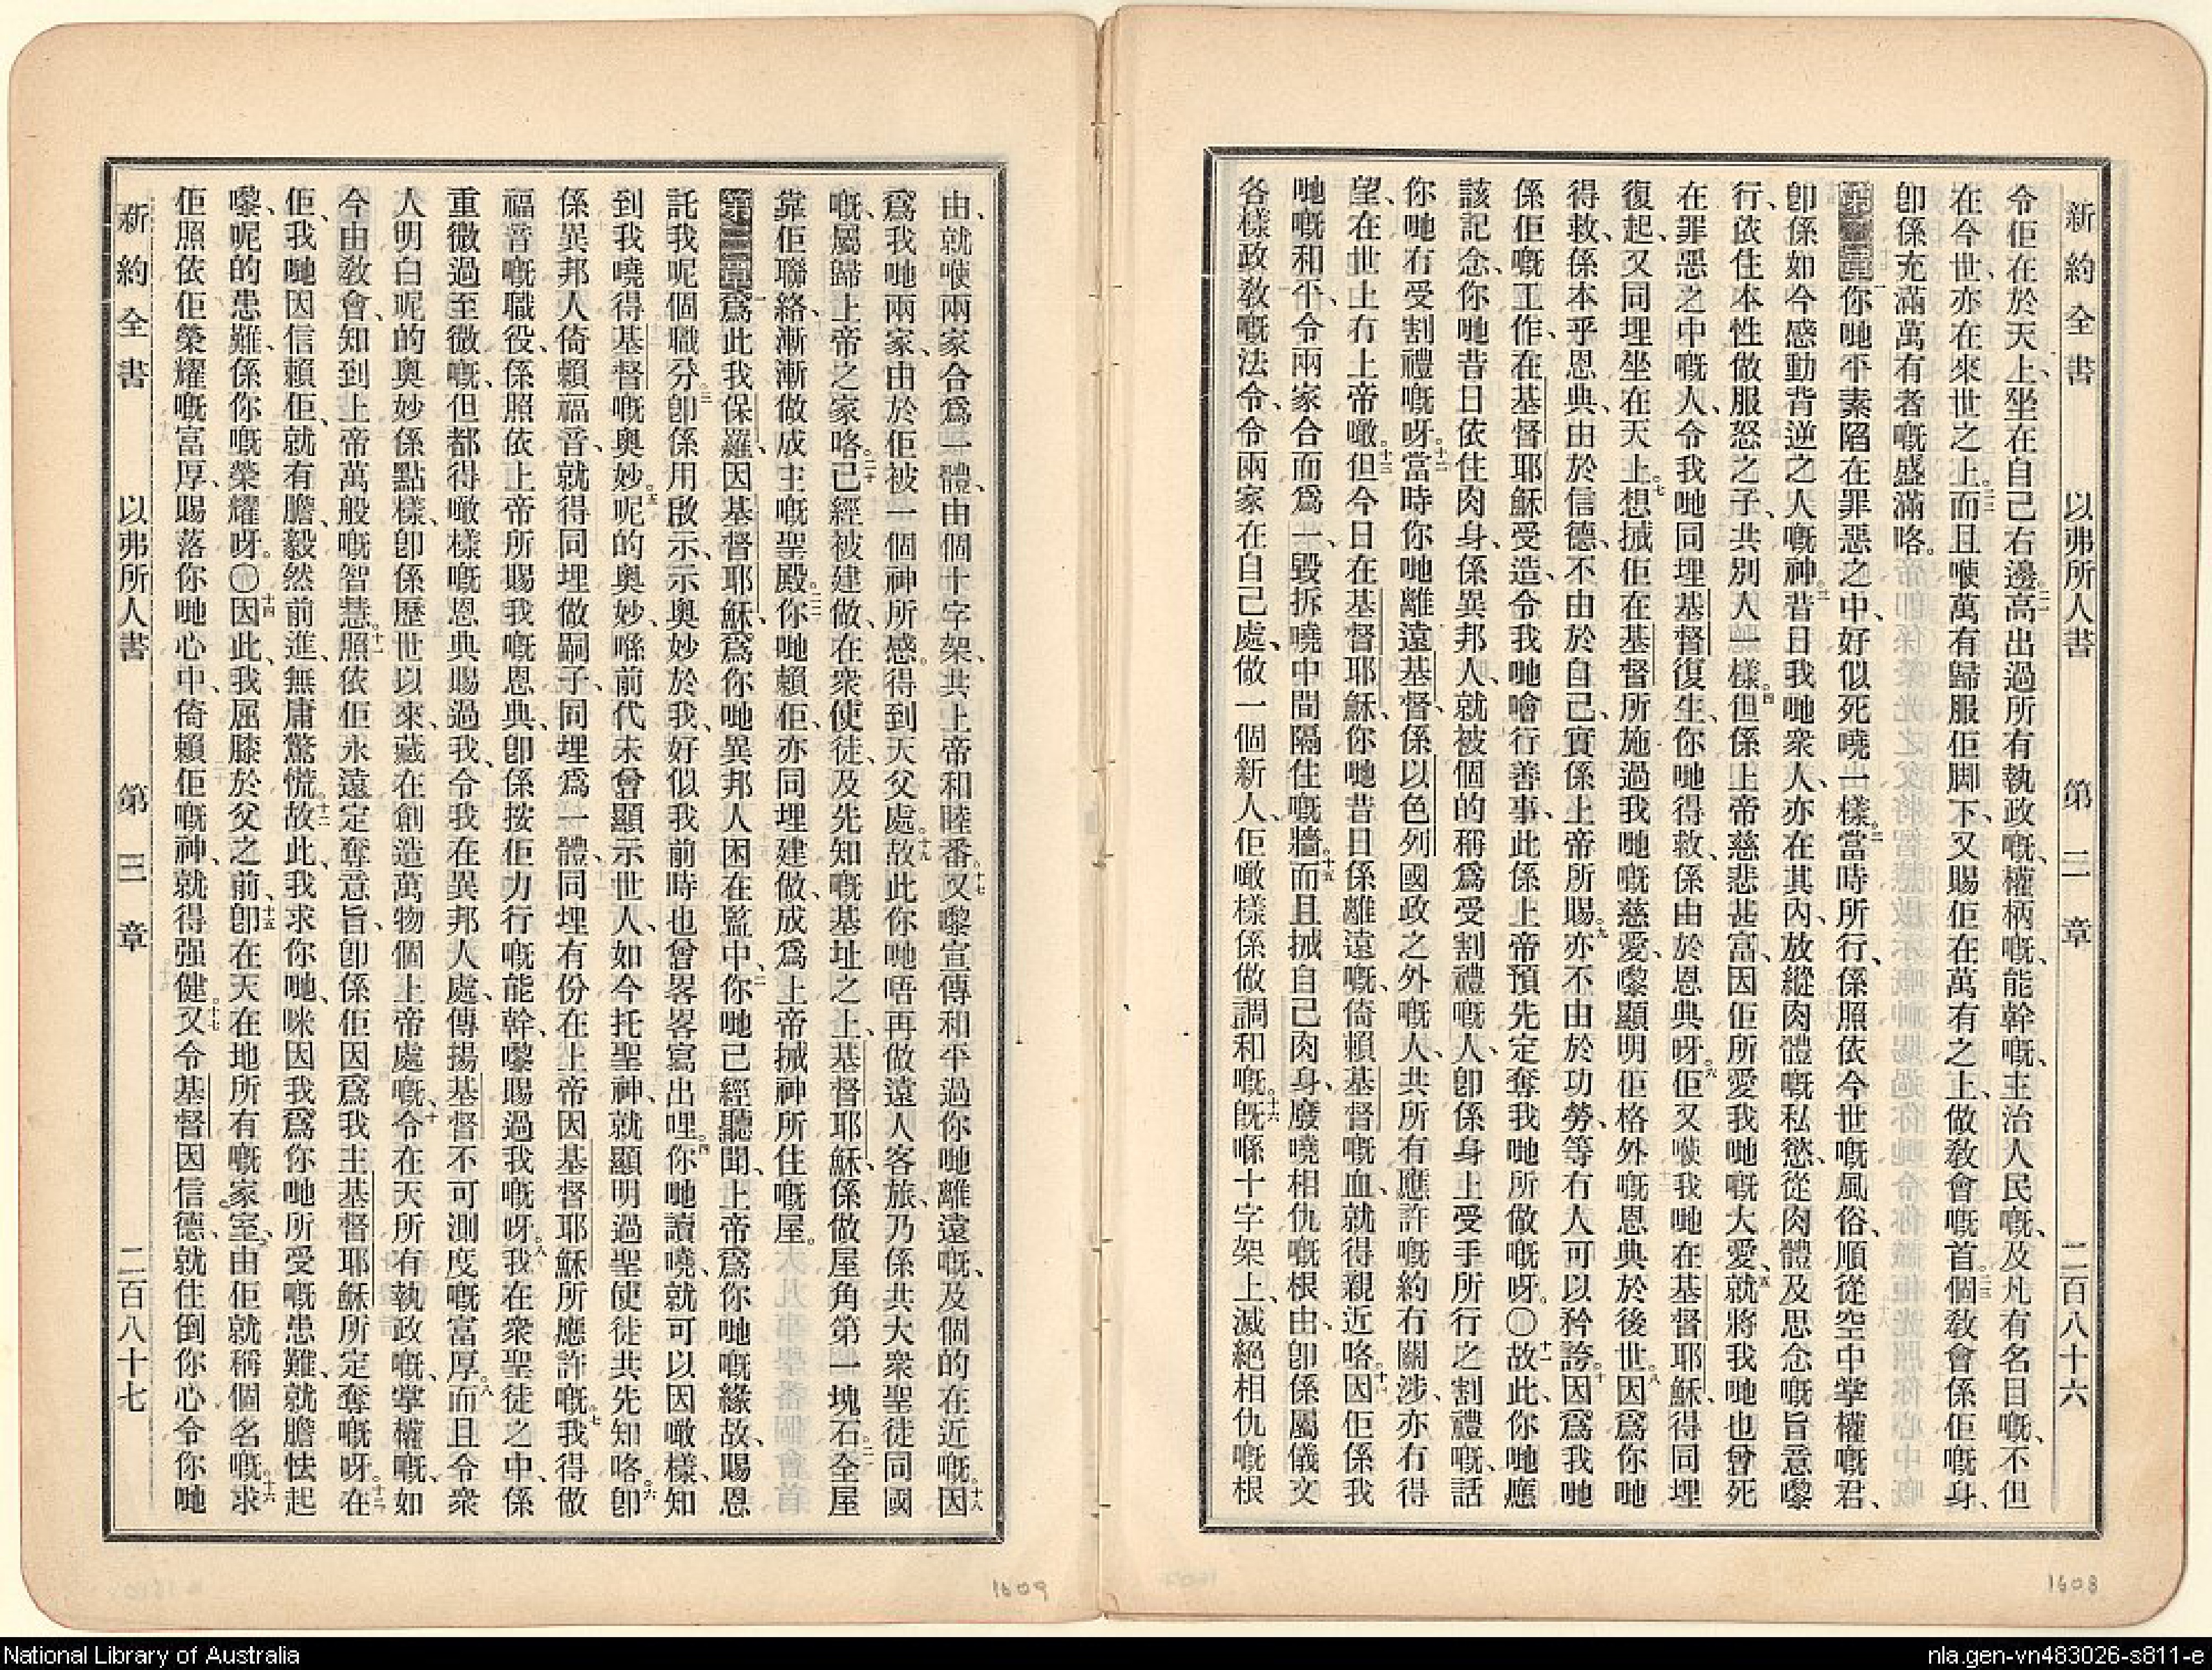 新約全書 以弗所人書 第二章 二百八十六
令佢在於天上、坐在自己右邊。二一高出過所有執政嘅、權柄嘅、能幹嘅、主治人民嘅、及凡有名目嘅、不但
在今世、亦在來世之上。二二而且喺萬有歸服佢脚下、又賜佢在萬有之上、做敎會嘅首。二三個敎會係佢嘅身、
卽係充滿萬有者嘅盛滿咯。
第二章一你哋平素陷在罪惡之中、好似死嘵一樣。二當時所行、係照依今世嘅風俗、順從空中掌權嘅君、
卽係如今感動背逆之人嘅神。三昔日我哋衆人、亦在其內、放縱肉體嘅私慾、從肉體及思念嘅旨意嚟
行、依住本性做服怒之子、共別人一樣。四但係上帝慈悲甚富、因佢所愛我哋嘅大愛、五就將我哋也曾死
在罪惡之中嘅人、令我哋同埋基督復生、你哋得救、係由於恩典呀。六佢又喺我哋在基督耶穌、得同埋
復起、又同埋坐在天上。七想搣佢在基督所施過我哋嘅慈愛、嚟顯明佢格外嘅恩典於後世。八因爲你哋
得救、係本乎恩典、由於信德、不由於自己、實係上帝所賜。九亦不由於功勞、等有人可以矜誇。十因爲我哋
係佢嘅工作、在基督耶穌受造、令我哋噲行善事、此係上帝預先定奪我哋所做嘅呀。〇十一故此、你哋應
該記念、你哋昔日依住肉身、係異邦人、就被個的稱爲受割禮嘅人、卽係身上受手所行之割禮嘅、話
你哋冇受割禮嘅呀。十二當時你哋離遠基督、係以色列國政之外嘅人、共所有應許嘅約冇關涉、亦冇得
望、在世上冇上帝噉。十三但今日在基督耶穌、你哋昔日係離遠嘅、倚賴基督嘅血、就得親近咯。十四因佢係我
哋嘅和平、令兩家合而爲一、毀拆嘵中間隔住嘅牆。十五而且搣自己肉身、廢嘵相仇嘅根由、卽係屬儀文
各樣政敎嘅法令、令兩家在自己處、做一個新人、佢噉樣係做調和嘅。十六旣喺十字架上、滅絕相仇嘅根
由、就喺兩家合爲一體、由個十字架、共上帝和睦番。十七又嚟宣傳和平過你哋離遠嘅、及個的在近嘅。十八因
爲我哋兩家、由於佢被一個神所感。得到天父處。十九故此你哋唔再做遠人客旅、乃係共大衆聖徒同國
嘅、屬歸上帝之家咯。二十已經被建做、在衆使徒、及先知嘅基址之上、基督耶穌、係做屋角第一塊石。二一全屋
靠佢聯絡、漸漸做成主嘅聖殿。二二你哋賴佢、亦同埋建做、成爲上帝搣神所住嘅屋。
第三章一爲此我保羅、因基督耶穌、爲你哋異邦人困在監中、二你哋已經聽聞、上帝爲你哋嘅緣故、賜恩
託我呢個職分。三卽係用啟示、示奧妙於我、好似我前時也曾畧畧寫出哩。四你哋讀嘵、就可以因噉樣、知
到我曉得基督嘅奧妙。五呢的奧妙、喺前代未曾顯示世人、如今托聖神、就顯明過聖使徒共先知咯。六卽
係異邦人倚賴福音、就得同埋做嗣子、同埋爲一體、同埋有份在上帝因基督耶穌所應許嘅。七我得做
福音嘅職役、係照依上帝所賜我嘅恩典、卽係按佢力行嘅能幹、嚟賜過我嘅呀。八我在衆聖徒之中、係
重微過至微嘅、但都得噉樣嘅恩典賜過我、令我在異邦人處、傳揚基督不可測度嘅富厚。八而且令衆
人明白呢的奧妙係點樣、卽係歷世以來、藏在創造萬物個上帝處嘅、十令在天所有執政嘅、掌權嘅、如
今由敎會、知到上帝萬般嘅智慧。十一照依佢永遠定奪意旨、卽係佢因爲我主基督耶穌所定奪嘅呀。十二在
佢、我哋因信賴佢、就有膽、毅然前進、無庸驚慌。十三故此、我求你哋、咪因我爲你哋所受嘅患難、就膽怯起
嚟、呢的患難、係你嘅榮耀呀。〇十四因此、我屈膝於父之前、十五卽在天在地所有嘅家室、由佢就稱個名嘅。十六求
佢照依佢榮耀嘅富厚、賜落你哋心中、倚賴佢嘅神、就得强健。十七又令基督因信德、就住倒你心、令你哋
新約全書 以弗所人書 第三章 二百八十七
1609
1608
National Library of Australia
nla.gen-vn483026-s811-e